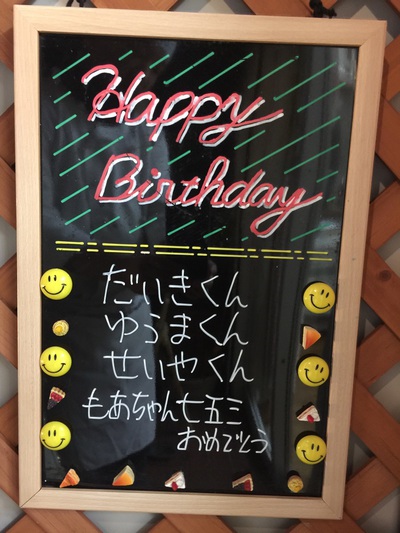 Happy
Birthday
だいきくん
ゆうまくん
せいやくん
もあちゃん七五三
おめでとう